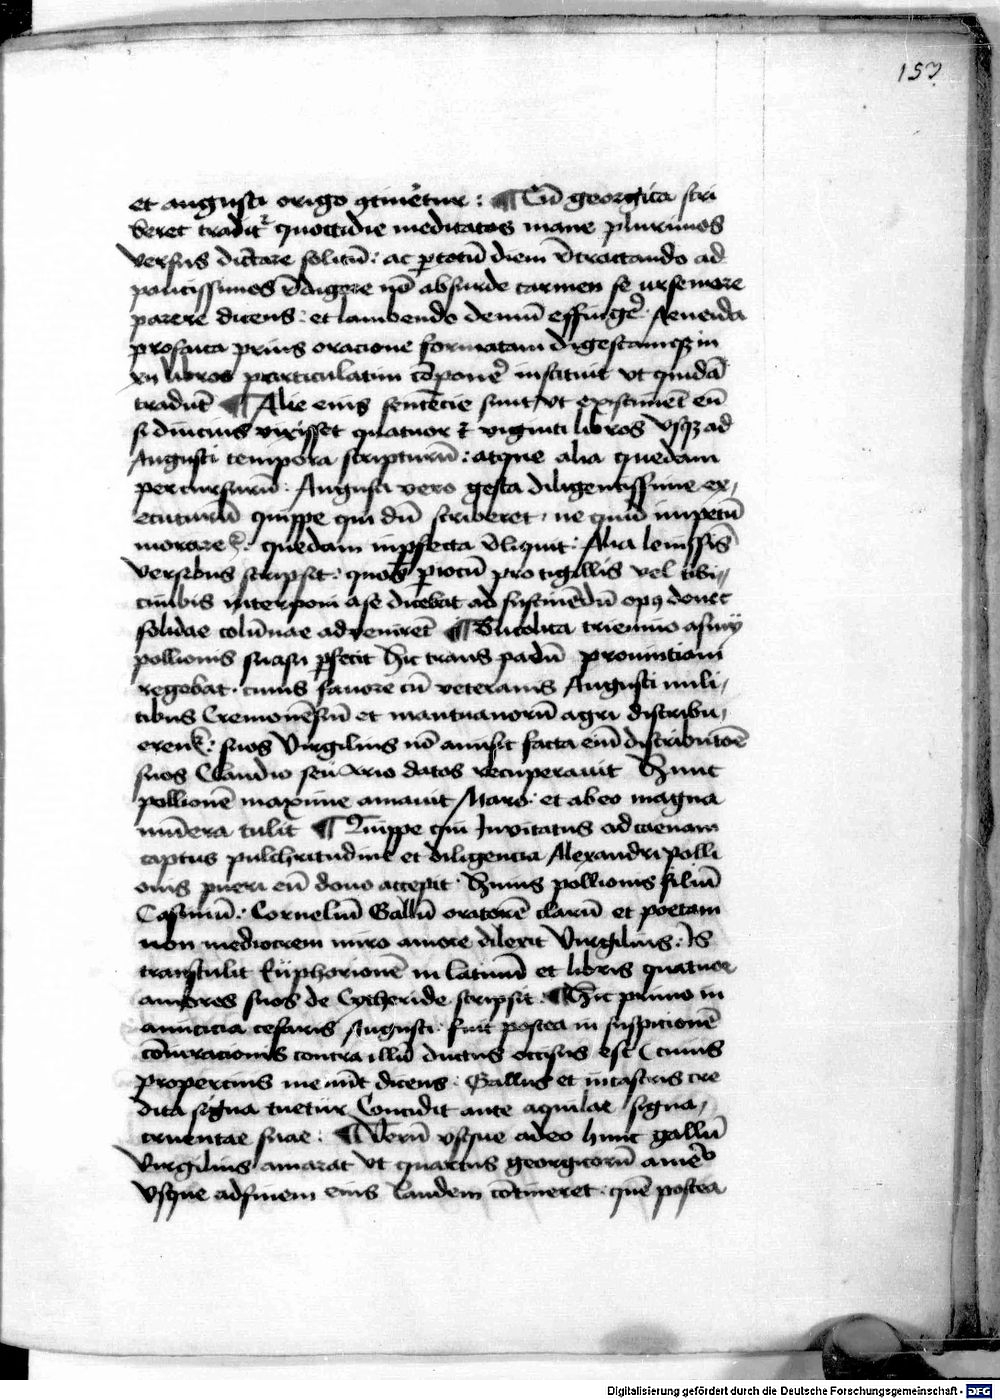 153
et augusti origo ɔtinet᷑ur : ¶ Cū georgica scri
beret tradit᷑ quottidie meditatos mane plurimos
versus dictare solitū : ac ꝑ totū diem r̄tractando ad
paucissimos r̄digere nō absurde carmen se ursemore
parere dicens : et lambendo demū effingeꝛ̄ Aeneida
prosaica prius oracione formatam digestamqꝫ in
xii libros particulatim cōponeꝛ̄ instituit ut quidā
tradūt ¶ Alie eius sentēcie sunt ut existiment eū
si diucius vixisset quatuor et viginti libros usqꝫ ad
Augusti tempora scripturū : atque alia quedam
percursurū · Augusti vero gesta diligentissime ex,
ecuturū quippe qui dū scriberet · ne quid impetū
morareᷣ · quedam inꝑfecta r̄liquit : Alia leuissīs
versibus scripsit : quos ꝑ iocū pro tigillis vel tibi,,
cinibis interponi a se dicebat ad sustinēdū opꝰ donec
solidae colūnae advenirēt ¶ Bucolica triennio asinÿ
pollionis suasu ꝑfecit Hic trans padū prouintiam
regebat · cuius fauore cū veteranis Augusti mili,
tibus Cremonēsiū et mantuanorū agri distribu,
erent᷑ : suos Virgilius nō amisit facta eiū distributōe
suos Claudio seu Arrio datos recuperavit Hunc
pollionē maxime amavit Maro : et ab eo magna
mūnera tulit ¶ Quippe qui Invitatus ad caenam
captus pulchritudine et diligencia Alexandri polli
onis pueri eū dono accepit · Huius pollionis filiū
Casiniū : Corneliū Gallū oratorē clarū et poetam
non mediocrem miro amore dilexit Virgilius : Is
transtulit Eüphorionē in Latinū et libris quatuor
amores suos de Cytheride scripsit : ¶ Hic primo in
amicicia cesaris Augusti · fuit postea in suspitionē
cōiuracionis contra illū ductus occisus est Cuius
propercius meminit dicens : Gallus et in castris cre
dita signa tuetur Concidit ante aquilae signa,
cruentae suae : ¶ Verū usque adeo hunc gallū
Virgilius amarat ut quartus georgicorū a medᵒ
usque ad finem eius laudem cōtineret · quē postea
Digitalisierung gefördert durch die Deutsche Forschungsgemeinschaft - DFG